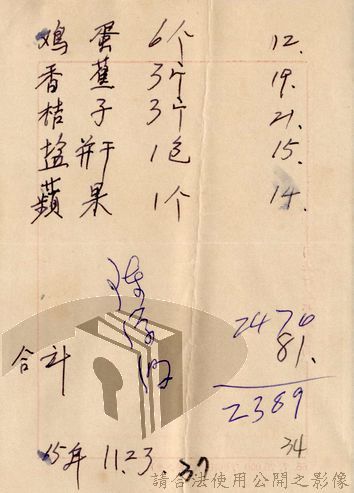 鸡蛋 6个 12.
香蕉 3个 19.
桔子 3个 21.
盐饼干 1包 15.
蘋果 1个 14.
2470
合计 81.
2389
34
65年 11.23.
請合法使用公開之影像